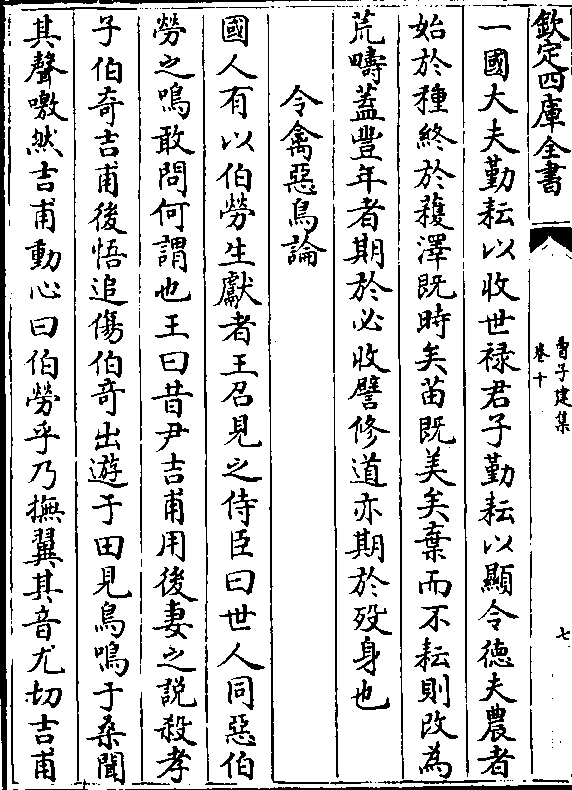 欽定四庫全書
曹子建集
卷十
七
一國大夫勤耘以收世禄君子勤耘以顯令德夫農者
始於種終於穫澤既時矣苗既美矣棄而不耘則改為
荒疇葢豐年者期於必收譬修道亦期於殁身也
令禽惡鳥論
國人有以伯勞生獻者王召見之侍臣曰世人同惡伯
勞之鳴敢問何謂也王曰昔尹吉甫用後妻之説殺孝
子伯奇吉甫後悟追傷伯奇出遊于田見鳥鳴于桑聞
其聲噭然吉甫動心曰伯勞乎乃撫翼其音尤切吉甫